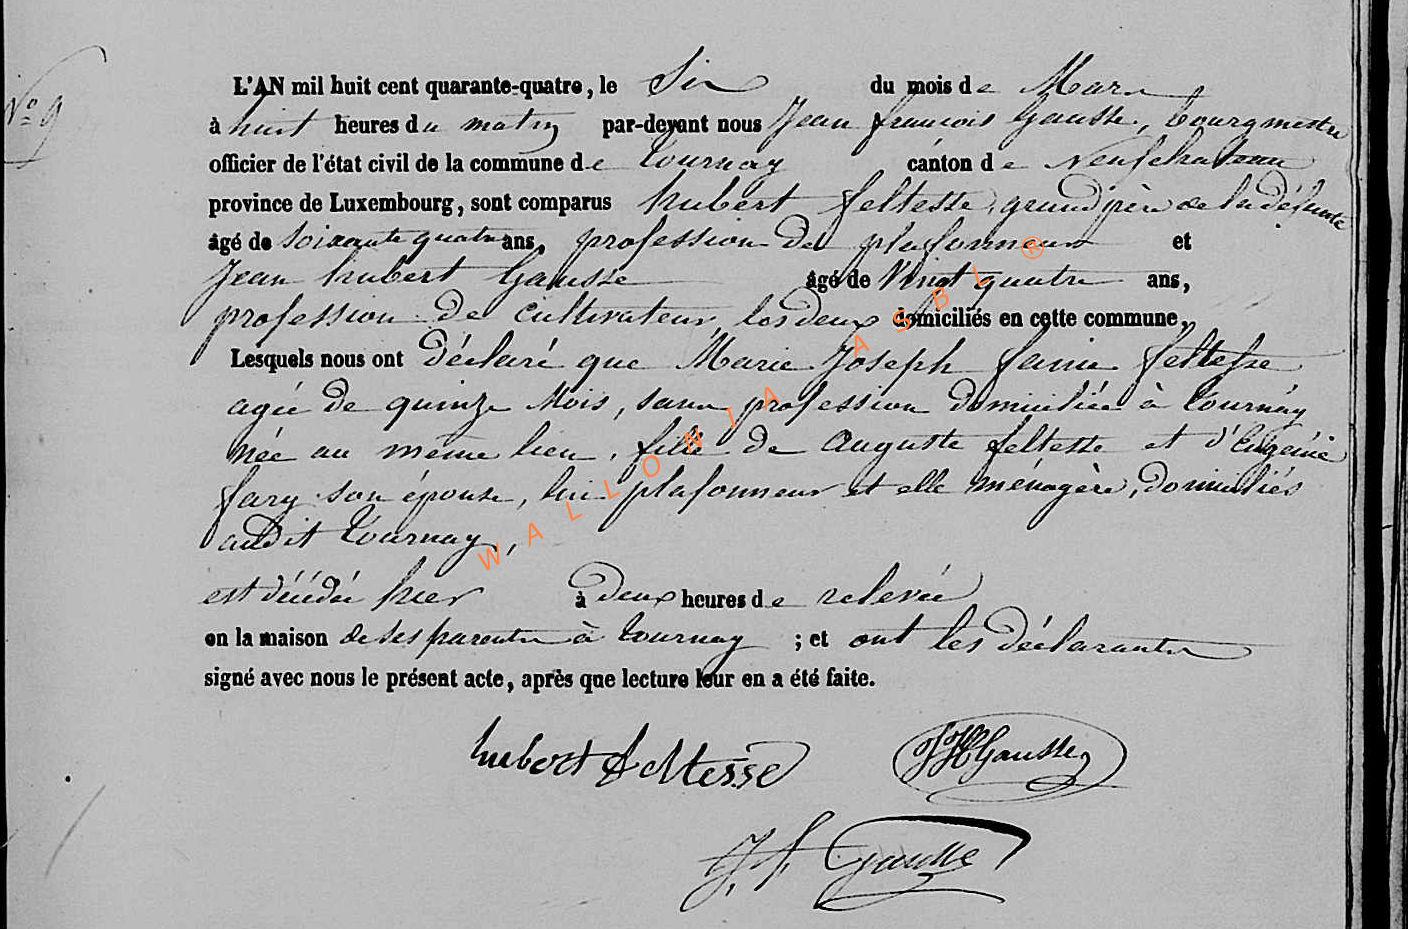 N.º 9
L'AN mil huit cent quarante-quatre, le Six du mois de Mars
à huit heures du matin par-devant nous Jean françois Gausse, bourgmestre
officier de l'état civil de la commune de Tournay canton de Neufchateau
province de Luxembourg, sont comparus hubert feltesse, grand père de la défunte
âgé de soixante quatre ans, profession de plafonneur et
Jean hubert Gausse âgé de Vingt quatre ans,
profession de cultivateur, les deux domiciliés en cette commune,
Lesquels nous ont déclaré que Marie Joseph feltesse
agée de quinze Mois, sans profession domiciliée à Tournay
née au même lieu, fille de Auguste feltesse et d'Eugénie
fary son épouse, lui plafonneur et elle ménagère, domiciliés
audit Tournay,
est décédée hier à deux heures de relevée
en la maison de ses parents à Tournay ; et ont les déclarants
signé avec nous le présent acte, après que lecture leur en a été faite.
hubert feltesse JHGausse
J. f. Gausse
WALLONIA ASBL ®